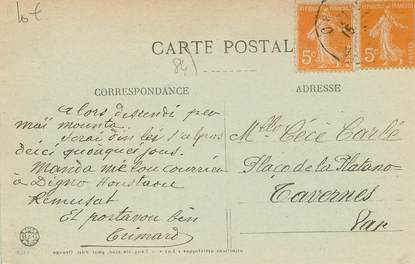 lot
CARTE POSTAL
(84)
CORRESPONDANCE
ADRESSE
5c
5c
Alors descendi per
mai mounta.
Serai din les s'alpos
d'eici quouques jous.
Manda mé lou courrier
à Digno Houstaou
Remusat
Et portavou bèn
Trimard
Mlle Cécé Carlé
Plaço de la Platano
Tavernes
Var